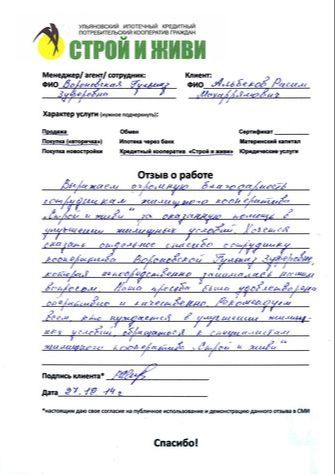 УЛЬЯНОВСКИЙ ИПОТЕЧНЫЙ КРЕДИТНЫЙ
ПОТРЕБИТЕЛЬСКИЙ КООПЕРАТИВ ГРАЖДАН
СТРОЙ И ЖИВИ
Менеджер/ агент/ сотрудник: Клиент:
ФИО Вороновская Гульназ ФИО Альбеков Расим
Зуферовна
Характер услуги (нужное подчеркнуть):
Продажа Обмен Сертификат
Покупка «вторичка» Ипотека через банк Материнский капитал
Покупка новостройки Кредитный кооператив «Строй и живи» Юридические услуги
Отзыв о работе
Выражаем огромную благодарность
сотрудникам жилищного кооператива
"Строй и живи" за оказанную помощь в
улучшении жилищных условий. Хочется
сказать отдельное спасибо сотруднику
кооператива Вороновской Гульназ Зуферовне,
которая непосредственно занималась нашим
вопросом. Наша просьба была удовлетворена
оперативно и качественно. Рекомендуем
всем, кто нуждается в улучшении жилищ-
ных условий, обращаться к специалистам
жилищного кооператива "Строй и живи"
Подпись клиента*
Дата 27.10 14 г.
*настоящим даю свое согласие на публичное использование и демонстрацию данного отзыва в СМИ
Спасибо!